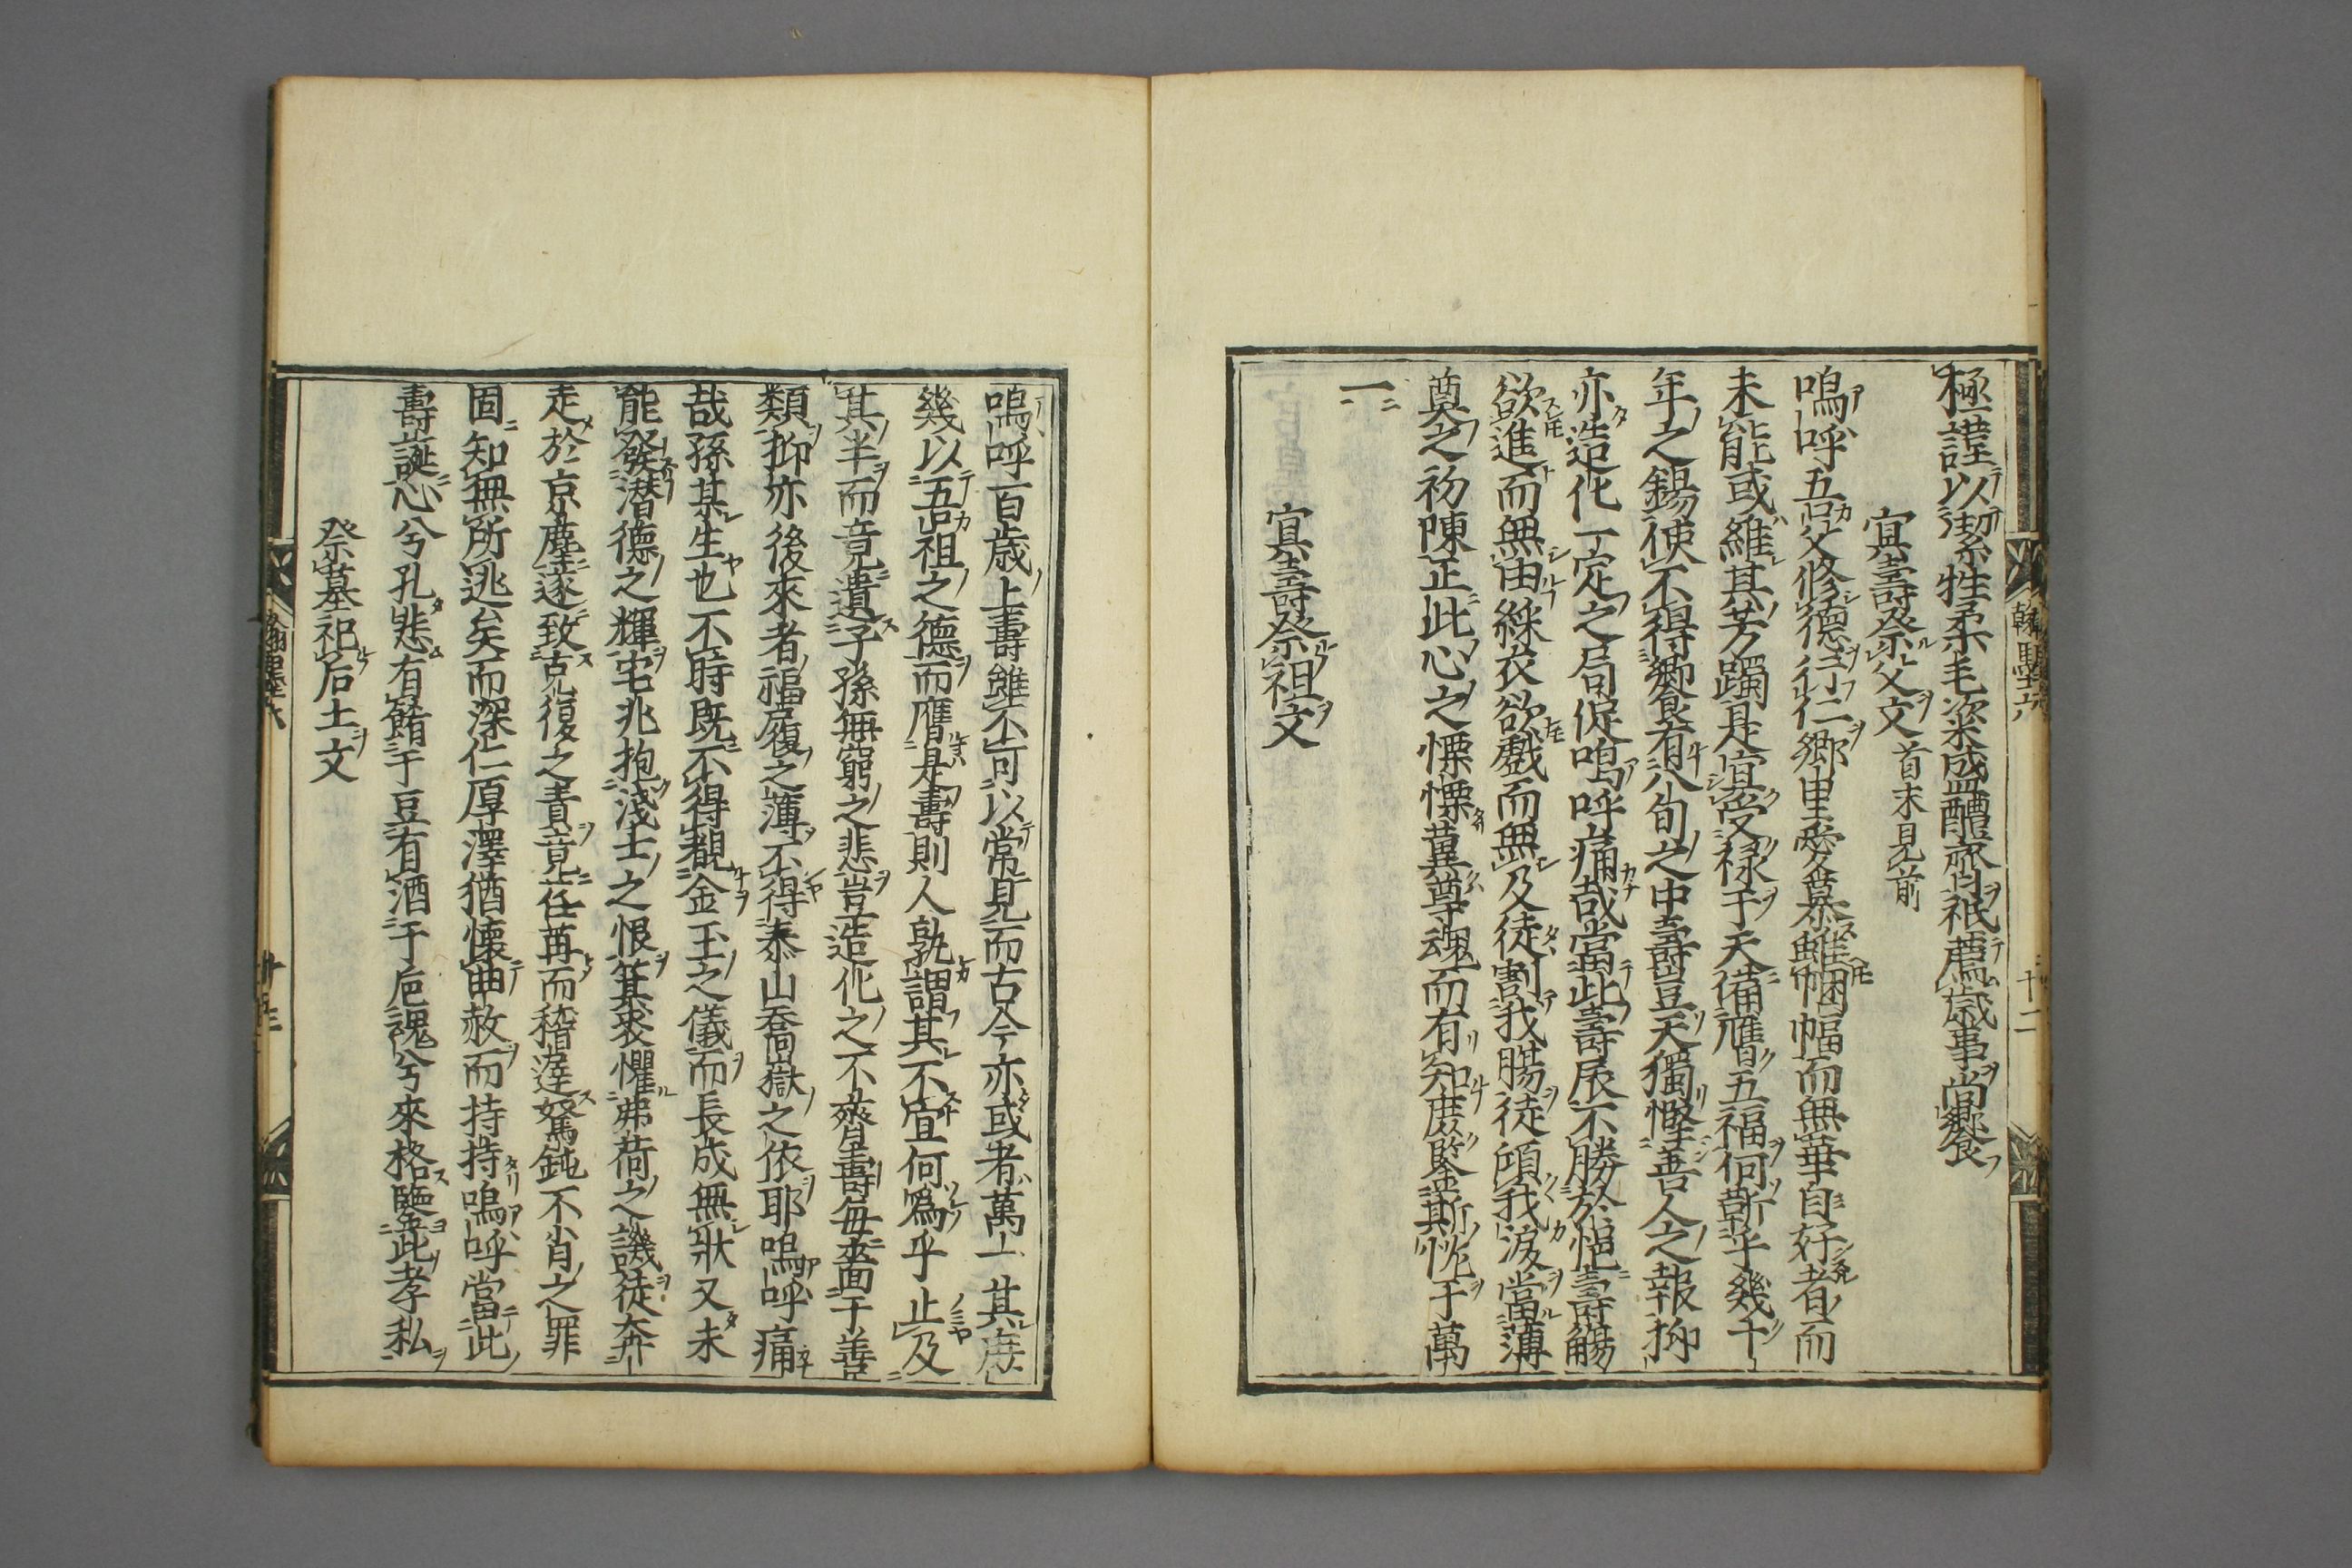 極謹以潔牲柔毛粢盛醴齊祇薦歳事尚饗
冥壽祭父文 首末見前
嗚呼吾父修德行仁鄉里愛慕雖悃愊而無華自好者而
未能或維其芳躅是宜受禄于天備膺五福何蘄乎幾十
年之錫使不得饗有八旬之中壽豈天獨慳善人之報抑
亦造化一定之局促嗚呼痛哉當此壽辰不勝於悒壽觴
欲進而無由綵衣欲戲而無及徒割我腸徒頎我淚當薄
奠之初陳正此心之慄慄冀尊魂而有知庶鑒斯忱于萬
一
冥壽祭祖文
翰墨六
十二
嗚呼百歳上壽雖不可以常見而古今亦或者萬一其庶
幾以吾祖之德而膺是壽則人孰謂其不宜何爲乎止及
其半而竟遺子孫無窮之悲豈造化之不齊皇壽每嗇于善
類抑亦後來者福履之薄不得泰山喬嶽之依耶嗚呼痛
哉孫某生也不時既不得覩金玉之儀而長成無狀又未
能發潜德之輝宅兆抱淺士之恨箕裘懼弗荷之譏徒奔
走於京塵遂致克復之責竟荏苒而稽遅駑鈍不肖之罪
固知無所逃矣而深仁厚澤猶懐曲赦而持持嗚呼當此
壽誕心兮孔悲有餚于豆有酒于巵魂兮來格鑒此孝私
祭墓祀后土文
翰墨六